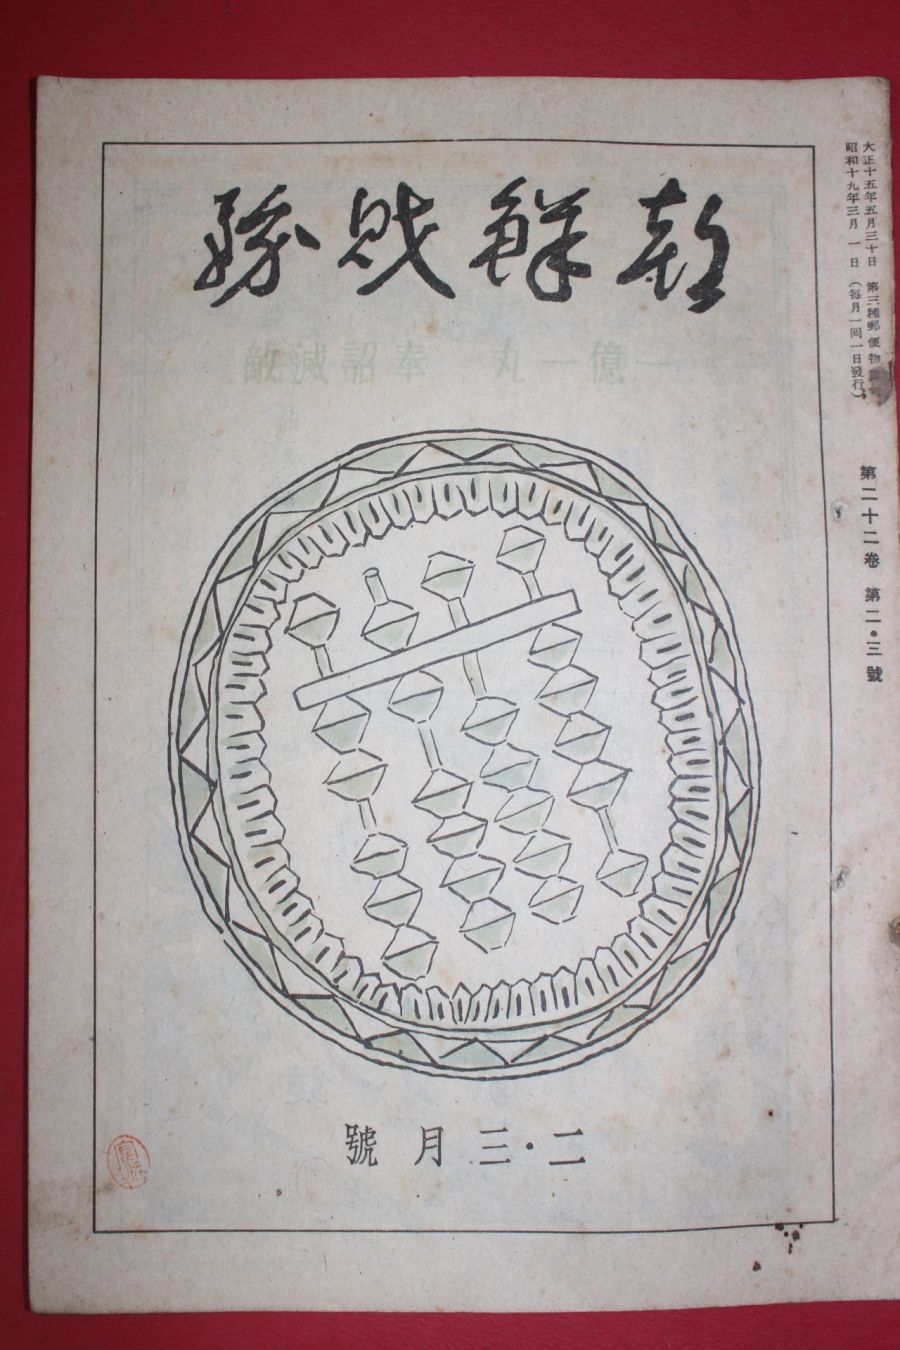 大正十五年五月三十日 第三種郵便物
昭和十九年三月 一日 (每月一回一日發行)
第二十二卷 第二・三號
朝鮮財務
一億一丸 奉詔滅敵
二・三月號